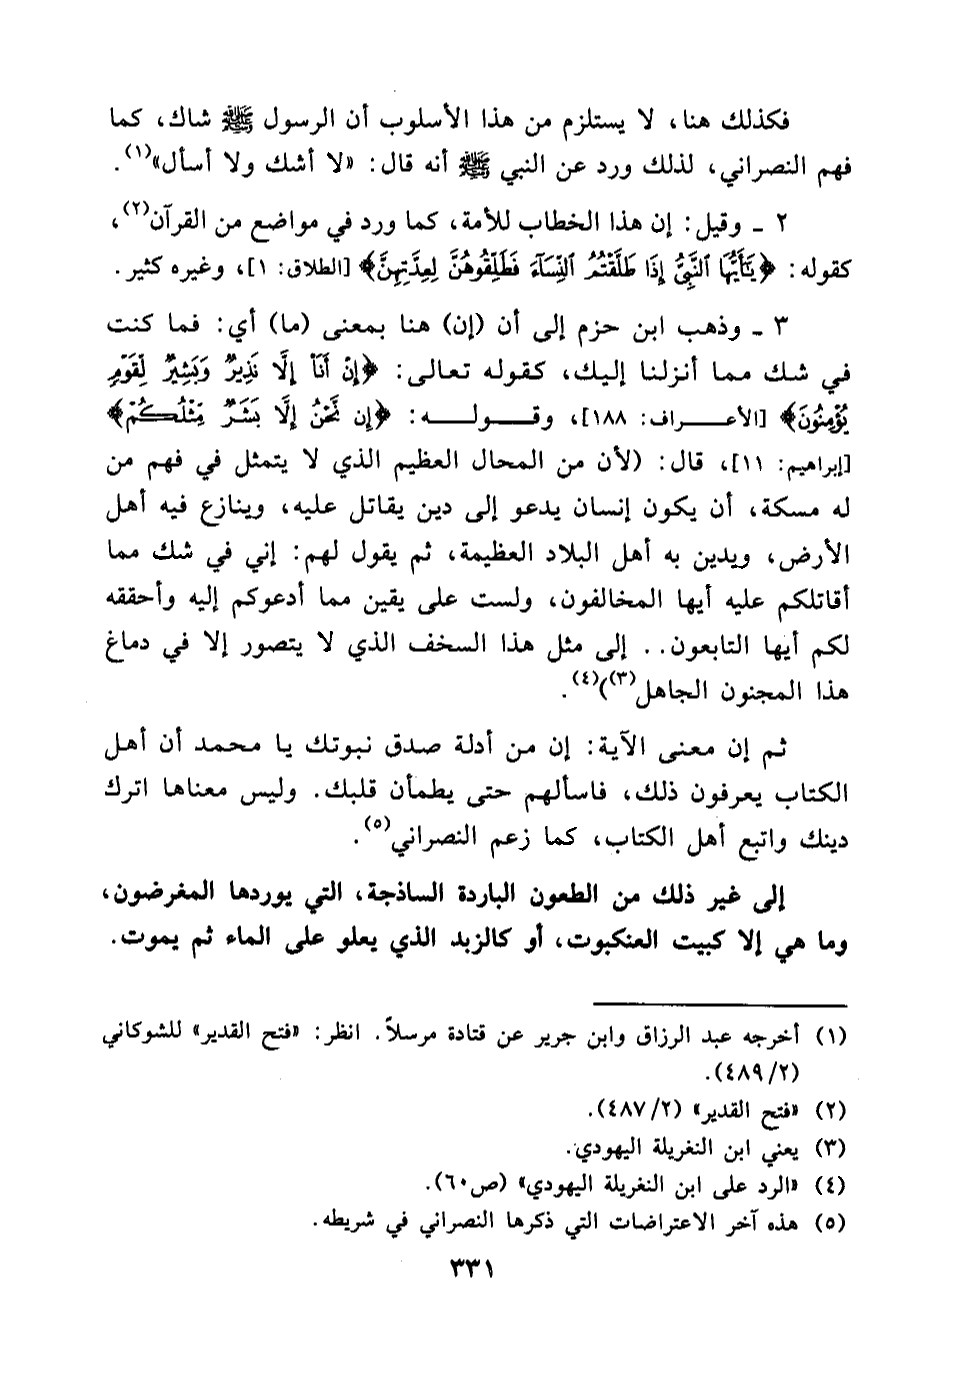 فكذلك هنا، لا يستلزم من هذا الأسلوب أن الرسول ﷺ شاك، كما
فهم النصراني، لذلك ورد عن النبي ﷺ أنه قال: «لا أشك ولا أسأل»(١).
٢ ـ وقيل: إن هذا الخطاب للأمة، كما ورد في مواضع من القرآن(٢)،
كقوله: ﴿يَٰٓأَيُّهَا ٱلنَّبِيُّ إِذَا طَلَّقْتُمُ ٱلنِّسَآءَ فَطَلِّقُوهُنَّ لِعِدَّتِهِنَّ﴾ [الطلاق: ١]، وغيره كثير.
٣ ـ وذهب ابن حزم إلى أن (إن) هنا بمعنى (ما) أي: فما كنت
في شك مما أنزلنا إليك، كقوله تعالى: ﴿إِنْ أَنَا۠ إِلَّا نَذِيرٌ وَبَشِيرٌ لِّقَوْمٍ
يُؤْمِنُونَ﴾ [الأعراف: ١٨٨]، وقوله: ﴿إِن نَّحْنُ إِلَّا بَشَرٌ مِّثْلُكُمْ﴾
[إبراهيم: ١١]، قال: (لأن من المحال العظيم الذي لا يتمثل في فهم من
له مسكة، أن يكون إنسان يدعو إلى دين يقاتل عليه، وينازع فيه أهل
الأرض، ويدين به أهل البلاد العظيمة، ثم يقول لهم: إني في شك مما
أقاتلكم عليه أيها المخالفون، ولست على يقين مما أدعوكم إليه وأحققه
لكم أيها التابعون.. إلى مثل هذا السخف الذي لا يتصور إلا في دماغ
هذا المجنون الجاهل(٣))(٤).
ثم إن معنى الآية: إن من أدلة صدق نبوتك يا محمد أن أهل
الكتاب يعرفون ذلك، فاسألهم حتى يطمأن قلبك. وليس معناها اترك
دينك واتبع أهل الكتاب، كما زعم النصراني(٥).
إلى غير ذلك من الطعون الباردة الساذجة، التي يوردها المغرضون،
وما هي إلا كبيت العنكبوت، أو كالزبد الذي يعلو على الماء ثم يموت.
(١) أخرجه عبد الرزاق وابن جرير عن قتادة مرسلاً. انظر: «فتح القدير» للشوكاني
(٤٨٩/٢).
(٢) «فتح القدير» (٤٨٧/٢).
(٣) يعني ابن النغريلة اليهودي.
(٤) «الرد على ابن النغريلة اليهودي» (ص٦٠).
(٥) هذه آخر الاعتراضات التي ذكرها النصراني في شريطه.
٣٣١